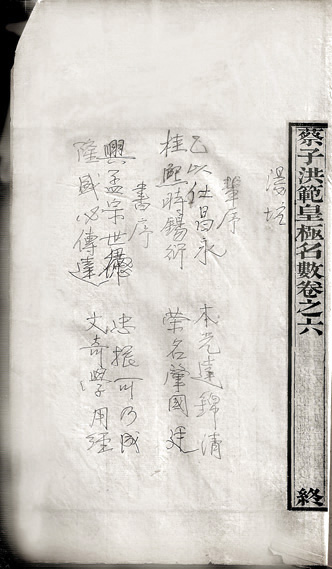 蔡子洪範皇極名數卷之六
終
輩序
乙以仕昌永 木光達錦清
桂熙時錫衍 榮名肇國廷
書序
興孟宗世德 忠振可乃成
隆盛必傳遠 文奇學用經